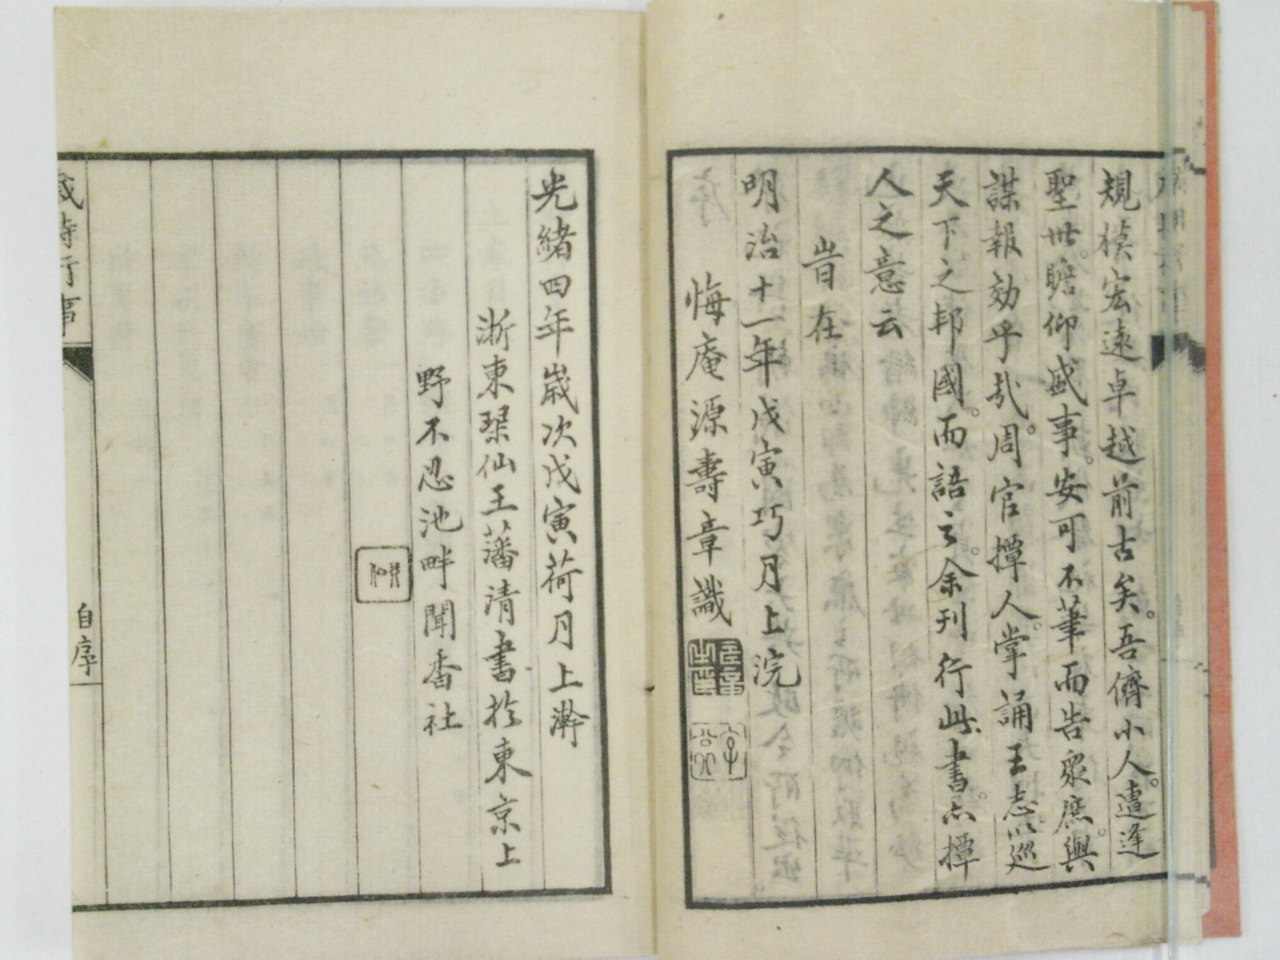 規模宏遠卓越前古矣。吾儕小人。遭逢
聖世。瞻仰盛事。安可不筆而告衆庶。與
謀報効乎哉。周官撢人。掌誦王志。以巡
天下之邦國。而語之。余刊行此書。亦撢
人之意云
昔在
明治十一年戊寅巧月上浣
悔庵源壽章識
光緒四年歳次戊寅荷月上澣
浙東琹仙王藩清書於東京上
野不忍池畔聞香社
歳時行事
自序